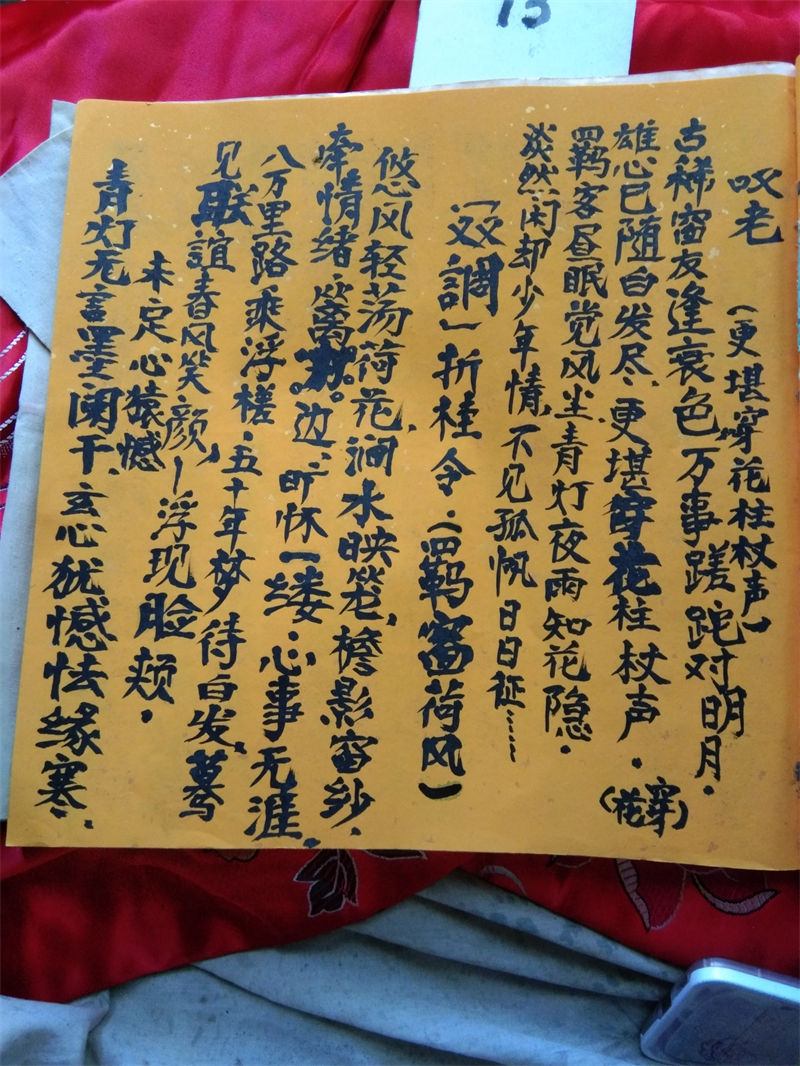 13
叹老
（更堪穿花柱杖声）
古稀窗友逢衰色万事蹉跎对明月.
雄心已随白发尽、更堪穿花柱杖声.
（穿花）
羁客昼眠觉风尘.青灯夜雨知花隐.
淡然闲却少年情,不见孤帆日日征……
「双調」折桂令.（羁窗荷风）
悠风轻荡荷花,涧水映笼,檐影窗纱.
牵情绪、篱 边、旷怀一缕、心事无涯.
八万里路乘浮槎.五十年梦待白发,蓦
见联谊春风笑颜,一浮现脸颊.
未定心猿憾
青灯无言墨阑干、玄心犹憾怯缘寒.